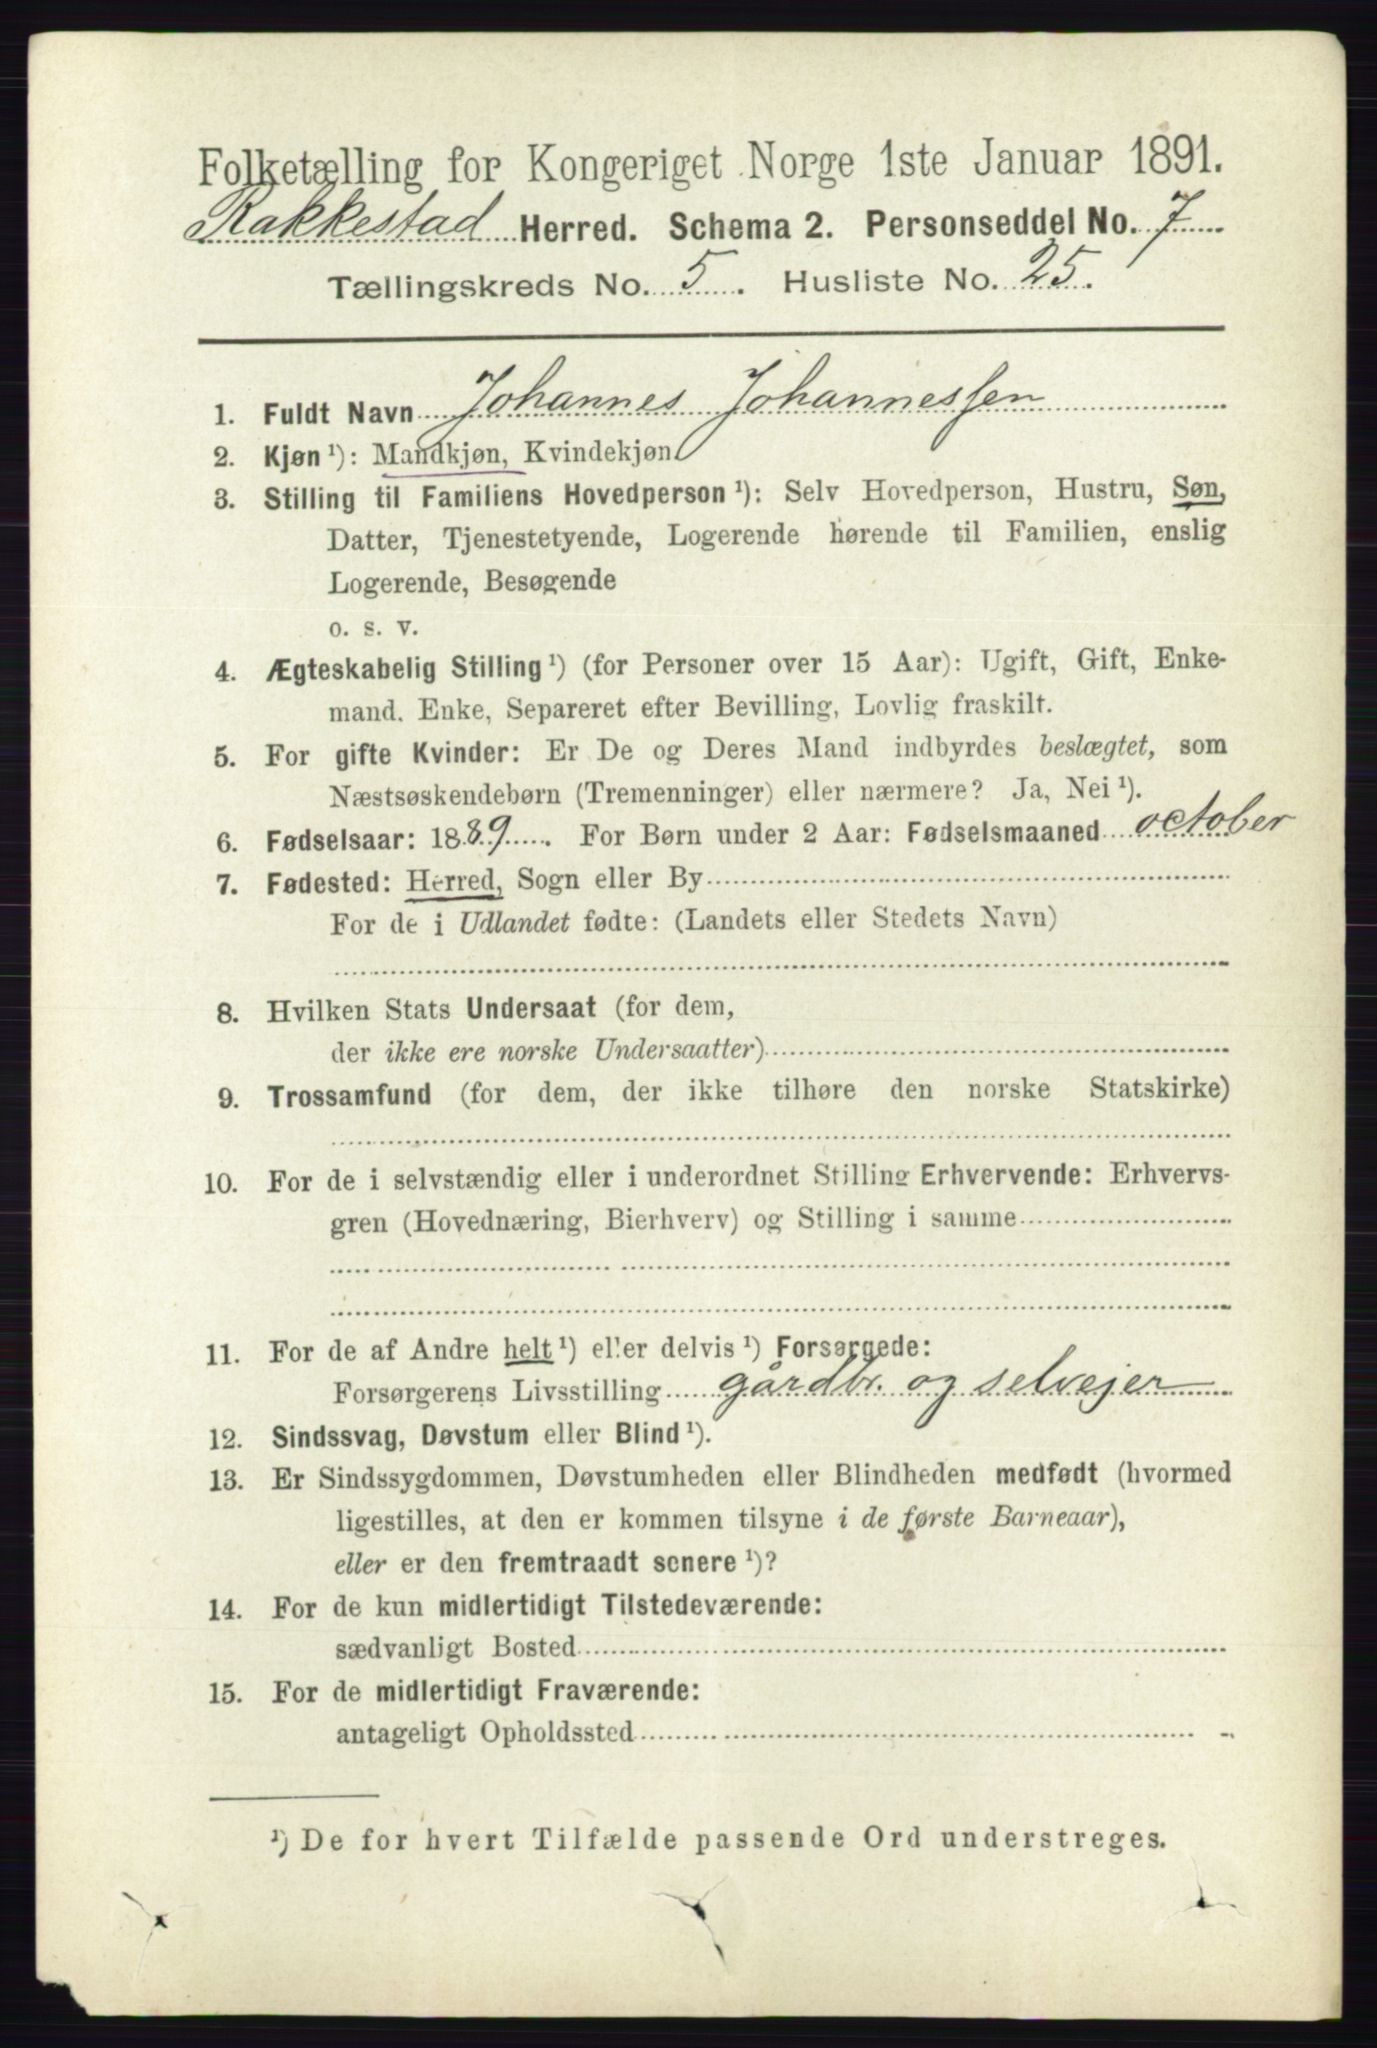 Folketælling for Kongeriget Norge 1ste Januar 1891.
Rakkestad Herred. Schema 2. Personseddel No. 7
Tællingskreds No. 5. Husliste No. 25.
1. Fuldt Navn Johannes Johannessen
2. Kjøn ¹): Mandkjøn, Kvindekjøn
3. Stilling til Familiens Hovedperson ¹): Selv Hovedperson, Hustru, Søn,
Datter, Tjenestetyende, Logerende hørende til Familien, enslig
Logerende, Besøgende
o. s. v.
4. Ægteskabelig Stilling ¹) (for Personer over 15 Aar): Ugift, Gift, Enke-
mand. Enke, Separeret efter Bevilling, Lovlig fraskilt.
5. For gifte Kvinder: Er De og Deres Mand indbyrdes beslægtet, som
Næstsøskendebørn (Tremenninger) eller nærmere? Ja, Nei ¹).
6. Fødselsaar: 1889. For Børn under 2 Aar: Fødselsmaaned october
7. Fødested: Herred, Sogn eller By
For de i Udlandet fødte: (Landets eller Stedets Navn)
8. Hvilken Stats Undersaat (for dem,
der ikke ere norske Undersaatter)
9. Trossamfund (for dem, der ikke tilhøre den norske Statskirke)
10. For de i selvstændig eller i underordnet Stilling Erhvervende: Erhvervs-
gren (Hovednæring, Bierhverv) og Stilling i samme
11. For de af Andre helt ¹) eller delvis ¹) Forsørgede:
Forsørgerens Livsstilling gårdbr. og selvejer
12. Sindssvag, Døvstum eller Blind ¹).
13. Er Sindssygdommen, Døvstumheden eller Blindheden medfødt (hvormed
ligestilles, at den er kommen tilsyne i de første Barneaar),
eller er den fremtraadt senere ¹)?
14. For de kun midlertidigt Tilstedeværende:
sædvanligt Bosted
15. For de midlertidigt Fraværende:
antageligt Opholdssted
¹) De for hvert Tilfælde passende Ord understreges.